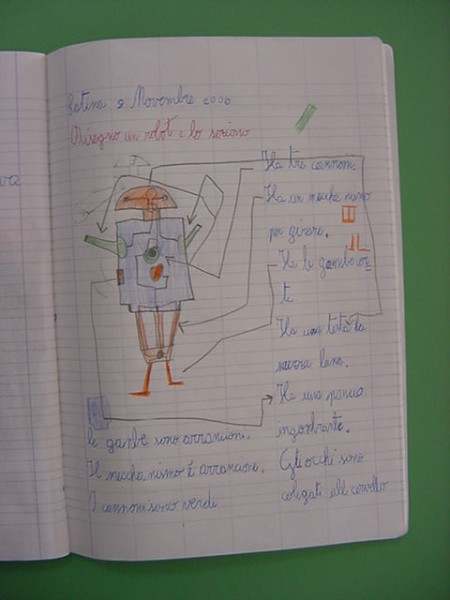 Latina 2 Novembre 2006
Disegno un robot e lo scrivo
Ha tre cannoni.
Ha un mecha nismo
per girare.
Ha le gambe cor
te
Ha una testa da
mezza luna.
Ha una pancia
ingombrante.
le gambe sono arrancioni.
Il mecha nismo è arrancione.
I cannoni sono verdi
Gli occhi sono
coligati all cervello